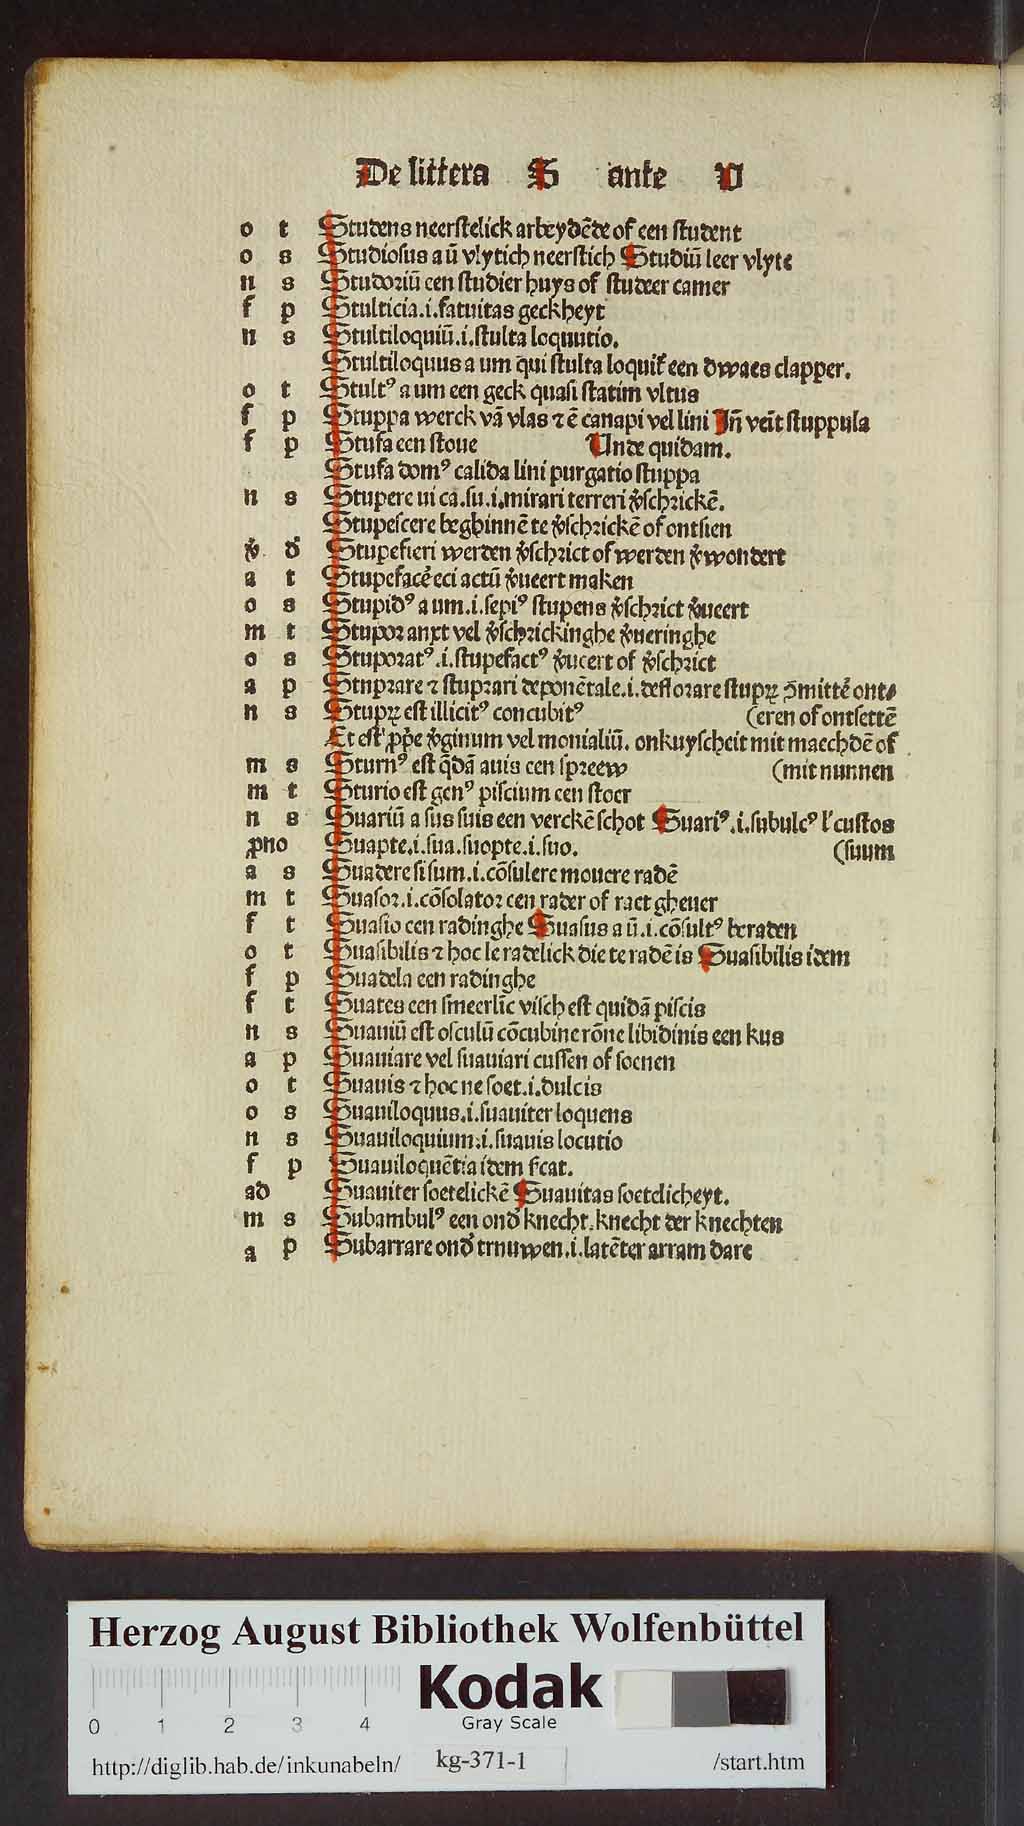 De littera S ante U
o t Studens neerstelick arbeydēde of een student
o s Studiosus a ū vlytich neerstich Studiū leer vlyte
n s Studoriū een studier huys of studeer camer
f p Stulticia.i.fatuitas geckheyt
n s Stultiloquiū.i.stulta loquutio.
Stultiloquus a um qui stulta loquit᷑ een dwaes clapper.
o t Stultꝰ a um een geck quasi statim vltus
f p Stuppa werck vā vlas ⁊ ē canapi vel lini Jn̄ veīt stuppula
f p Stufa een stoue Unde quidam.
Stufa domꝰ calida lini purgatio stuppa
n s Stupere ui ca.su.i.mirari terreri v̓schrickē.
Stupescere beghinnē te v̓schrickē of ontsien
v̓ d̓ Stupefieri werden v̓schrict of werden v̓wondert
a t Stupefacē̓ eci actū v̓ueert maken
o s Stupidꝰ a um.i.sepiꝰ stupens v̓schrict v̓ueert
m t Stupor anxt vel v̓schrickinghe v̓ueringhe
o s Stuporatꝰ.i.stupefactꝰ v̓ueert of v̓schrict
a p Stuprare ⁊ stuprari deponētale.i.deflorare stupꝝ ꝓmitte᷑ ont⸗
n s Stupꝝ est illicitꝰ concubitꝰ (eren of ontsettē
Et est ꝓp̄e v̓ginum vel monialiū. onkuyscheit mit maechdē of
m s Sturnꝰ est q̄dā auis een spreew (mit nunnen
m t Sturio est genꝰ piscium een stoer
n s Suariū a sus suis een verckē schot Suariꝰ.i.subulcꝰ l̓ custos
ꝓno Suapte.i.sua.suopte.i.suo. (suum
a s Suadere si sum.i.cōsulere mouere radē
m t Suasor.i.cōsolator een rader of raet gheuer
f t Suasio een radinghe Suasus a ū.i.cōsultꝰ beraden
o t Suasibilis ⁊ hoc le radelick die te radē is Suasibilis idem
f p Suadela een radinghe
f t Suates een smeerlīc visch est quidā piscis
n s Suauiū est osculū cōcubine rōne libidinis een kus
a p Suauiare vel suauiari cussen of soenen
o t Suauis ⁊ hoc ne soet.i.dulcis
o s Suauiloquus.i.suauiter loquens
n s Suauiloquium.i.suauis locutio
f p Suauiloquētia idem scat.
ad Suauiter soetelickē Suauitas soetelicheyt.
m s Subambulꝰ een ond̓ knecht.knecht der knechten
a p Subarrare ond̓ trnuwen.i.latēter arram dare
Herzog August Bibliothek Wolfenbüttel
Kodak
0 1 2 3 4
Gray Scale
http://diglib.hab.de/inkunabeln/ kg-371-1 /start.htm